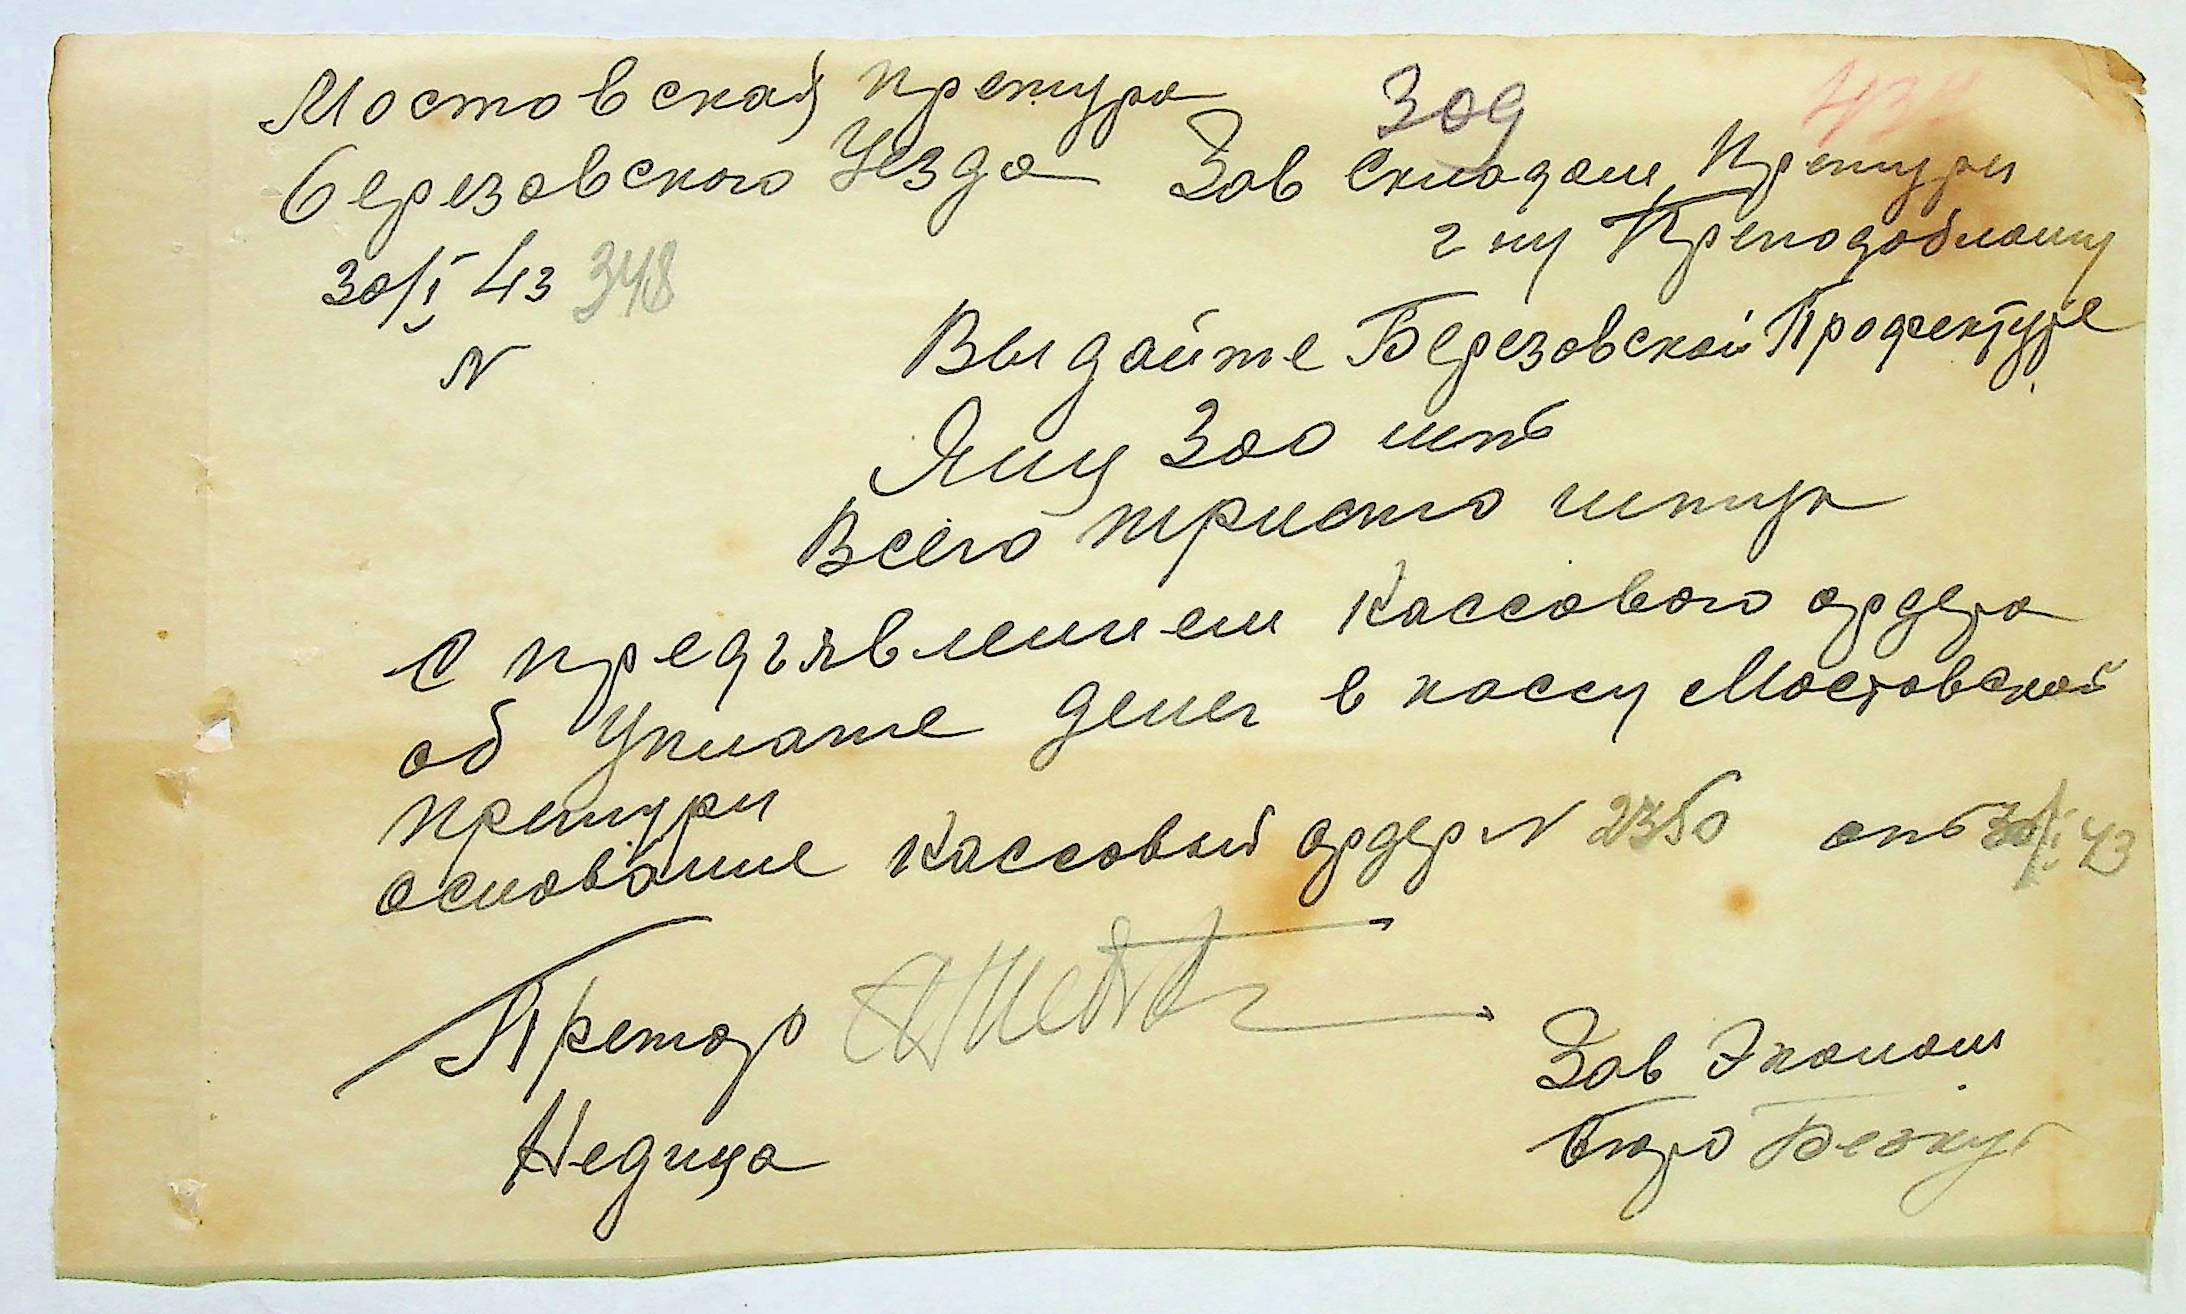 Мостовская претура
Березовского Уезда
30/V 43 348
N
309
Зав Складам Претуры
г ну Преподобному
Выдайте Березовской Профектуре
Яиц 300 шт
Всего триста штук
С предъявлением Кассового ордера
об Уплате денег в кассу Мостовской
претуры
основание Кассовый ордер N 2350 от 30/V 43
Претор
Недица
Зав Эконом
бюро